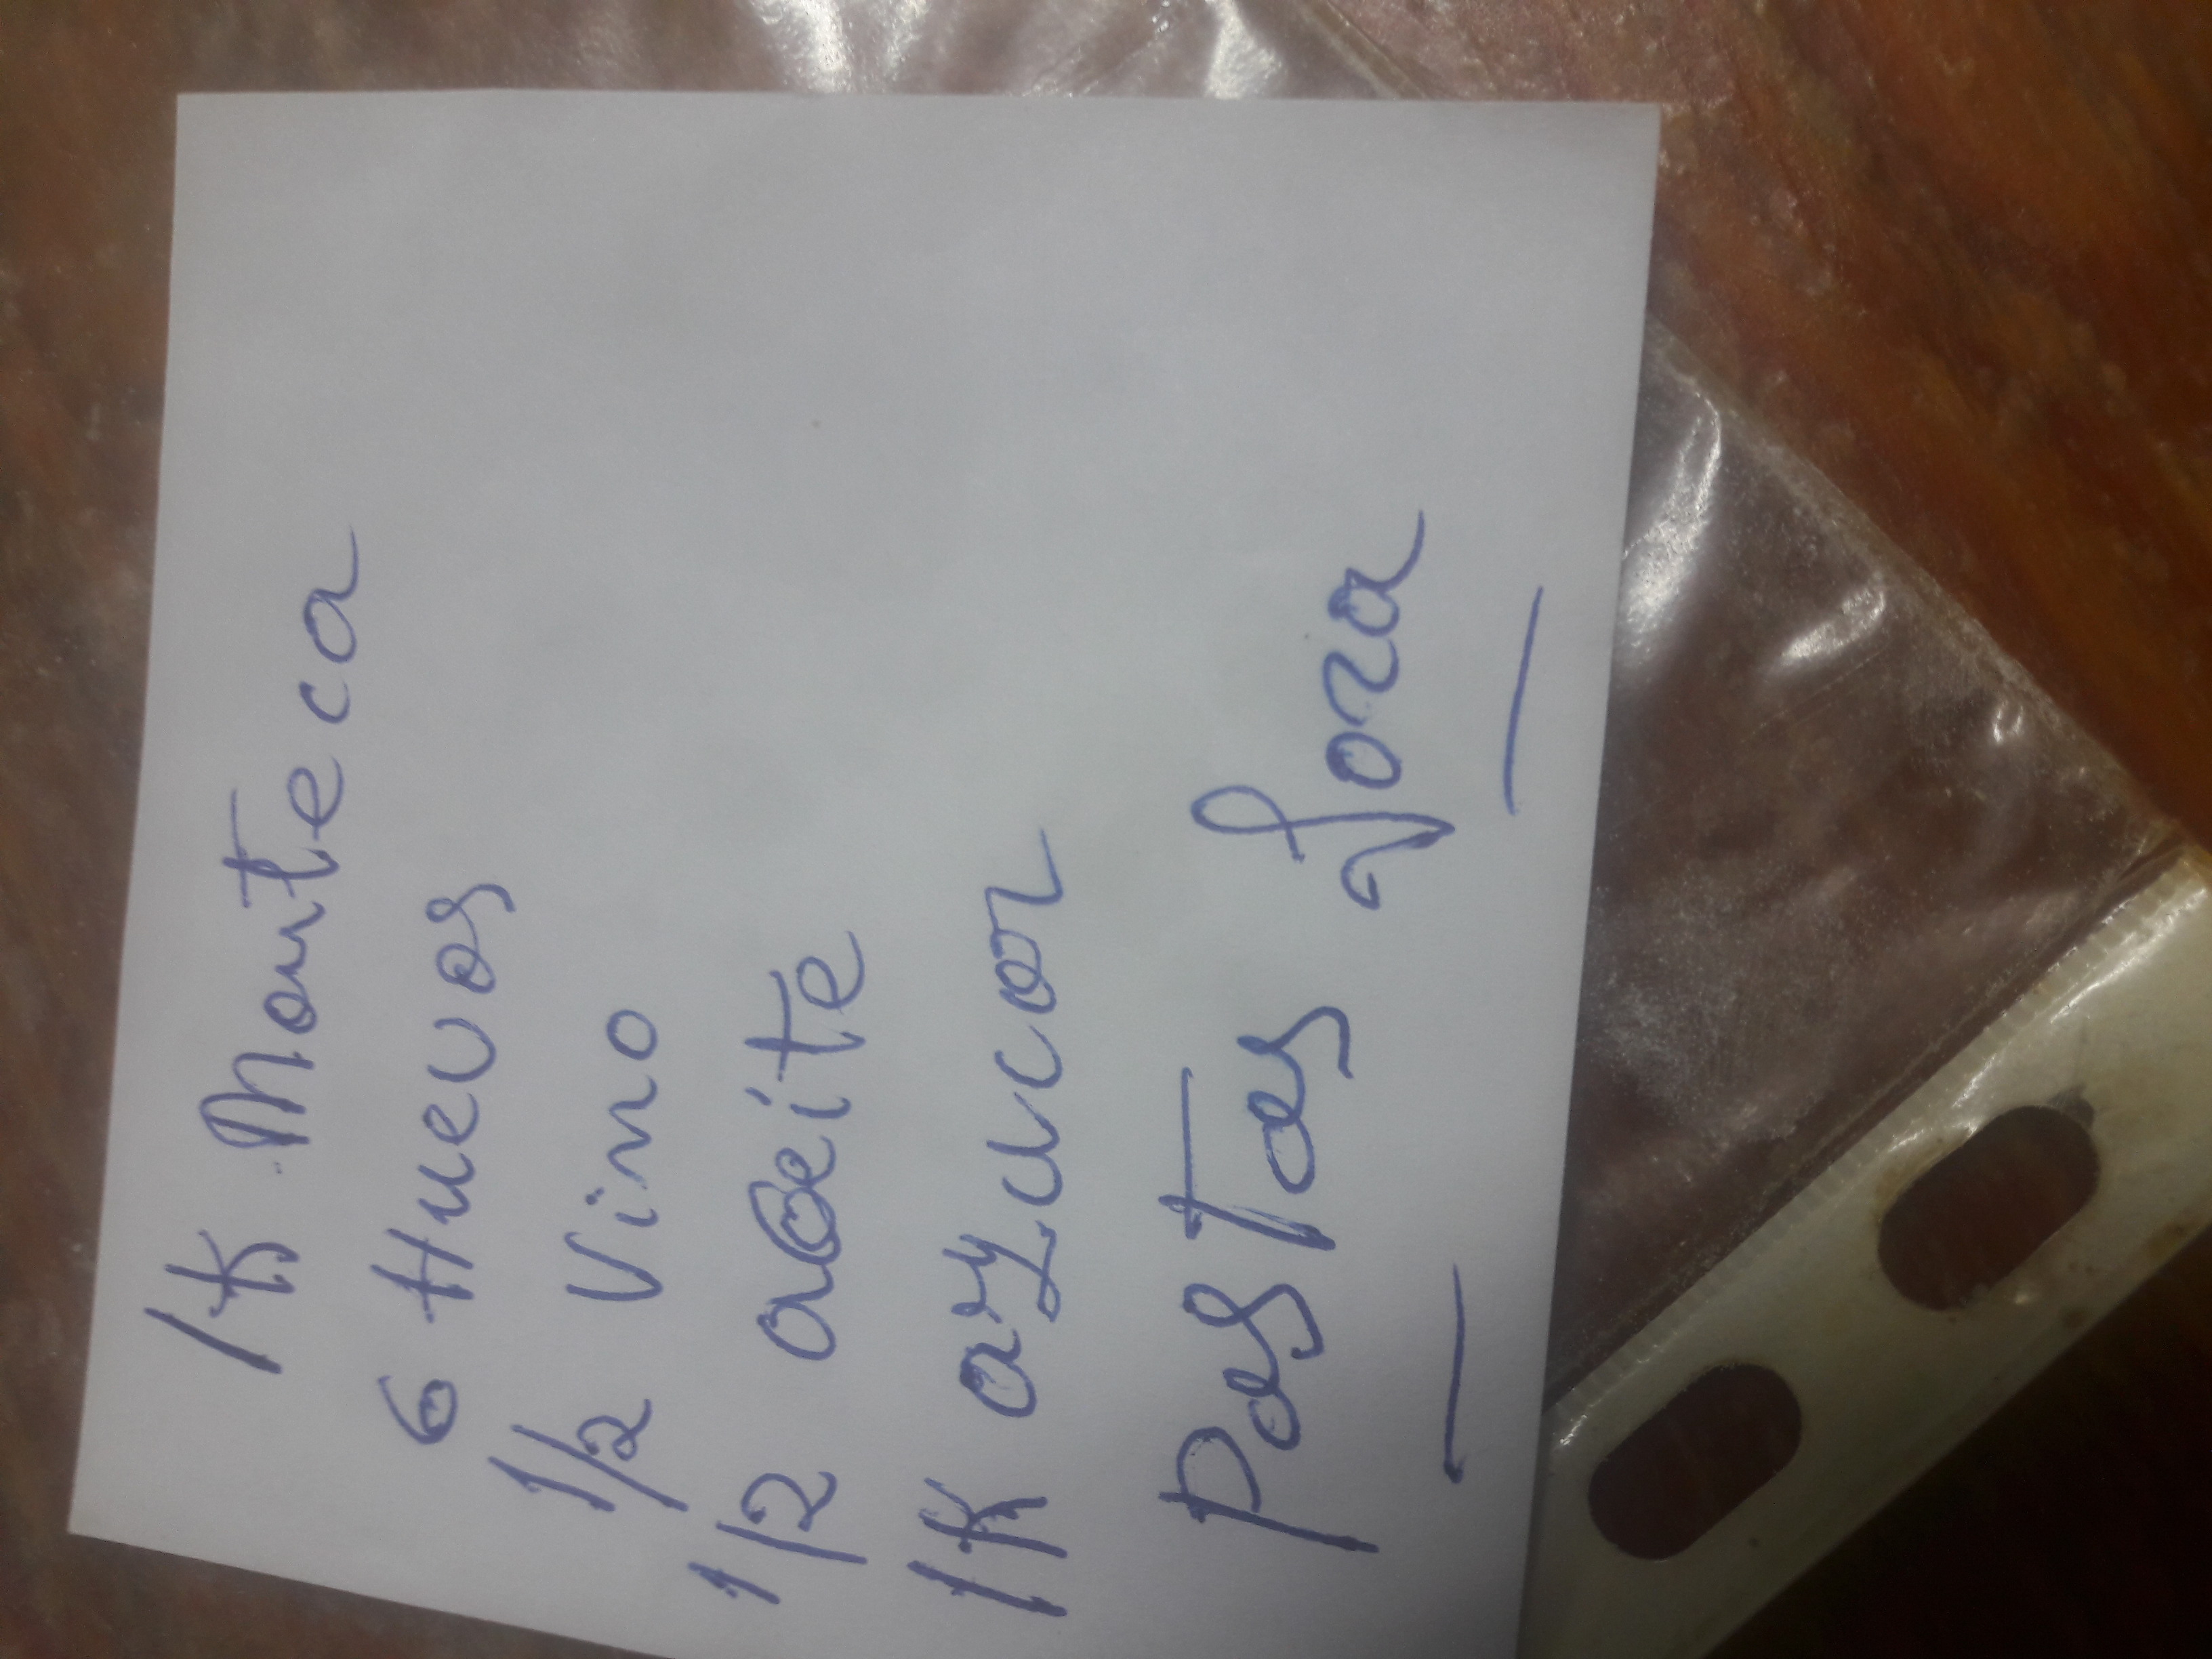 1K Manteca
6 Huevos
1/2 Vino
1/2 aceite
1K azucar
Pastas Joza